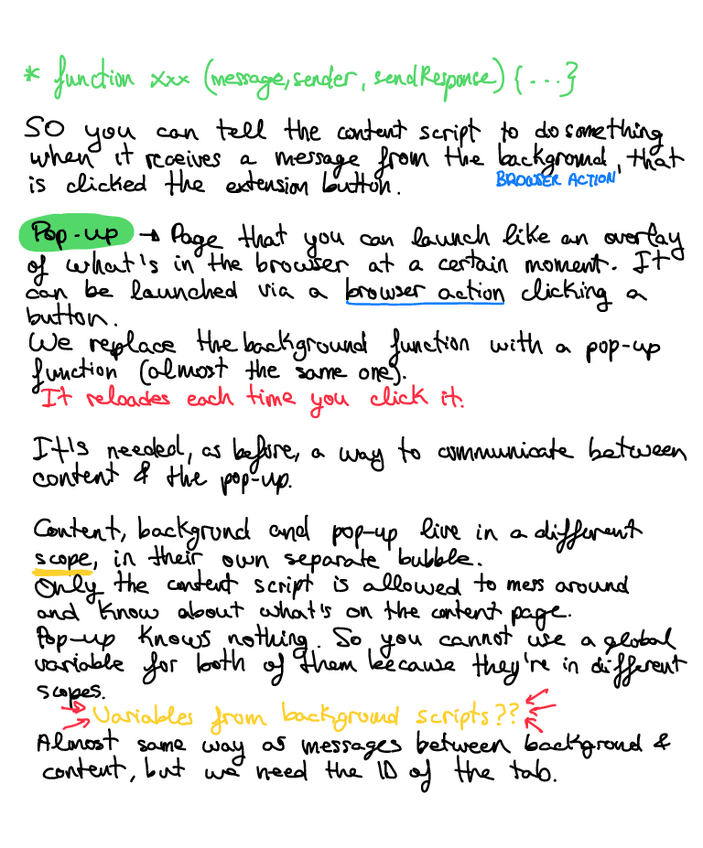 * function xxx (message, sender, sendResponse) {...}
SO you can tell the content script to do something
when it receives a message from the background, that
is clicked the extension button.
BROWSER ACTION
Pop-up → Page that you can launch like an overlay
of what's in the browser at a certain moment. It
can be launched via a browser action clicking a
button.
We replace the background function with a pop-up
function (almost the same one).
It reloades each time you click it.
It's needed, as before, a way to communicate between
content & the pop-up.
Content, backgrund and pop-up live in a different
scope, in their own separate bubble.
Only the content script is allowed to mess around
and know about what's on the content page.
Pop-up knows nothing. So you cannot use a global
variable for both of them because they're in different
scopes.
Variables from background scripts??
Almost same way as messages between backgrond &
content, but we need the ID of the tab.